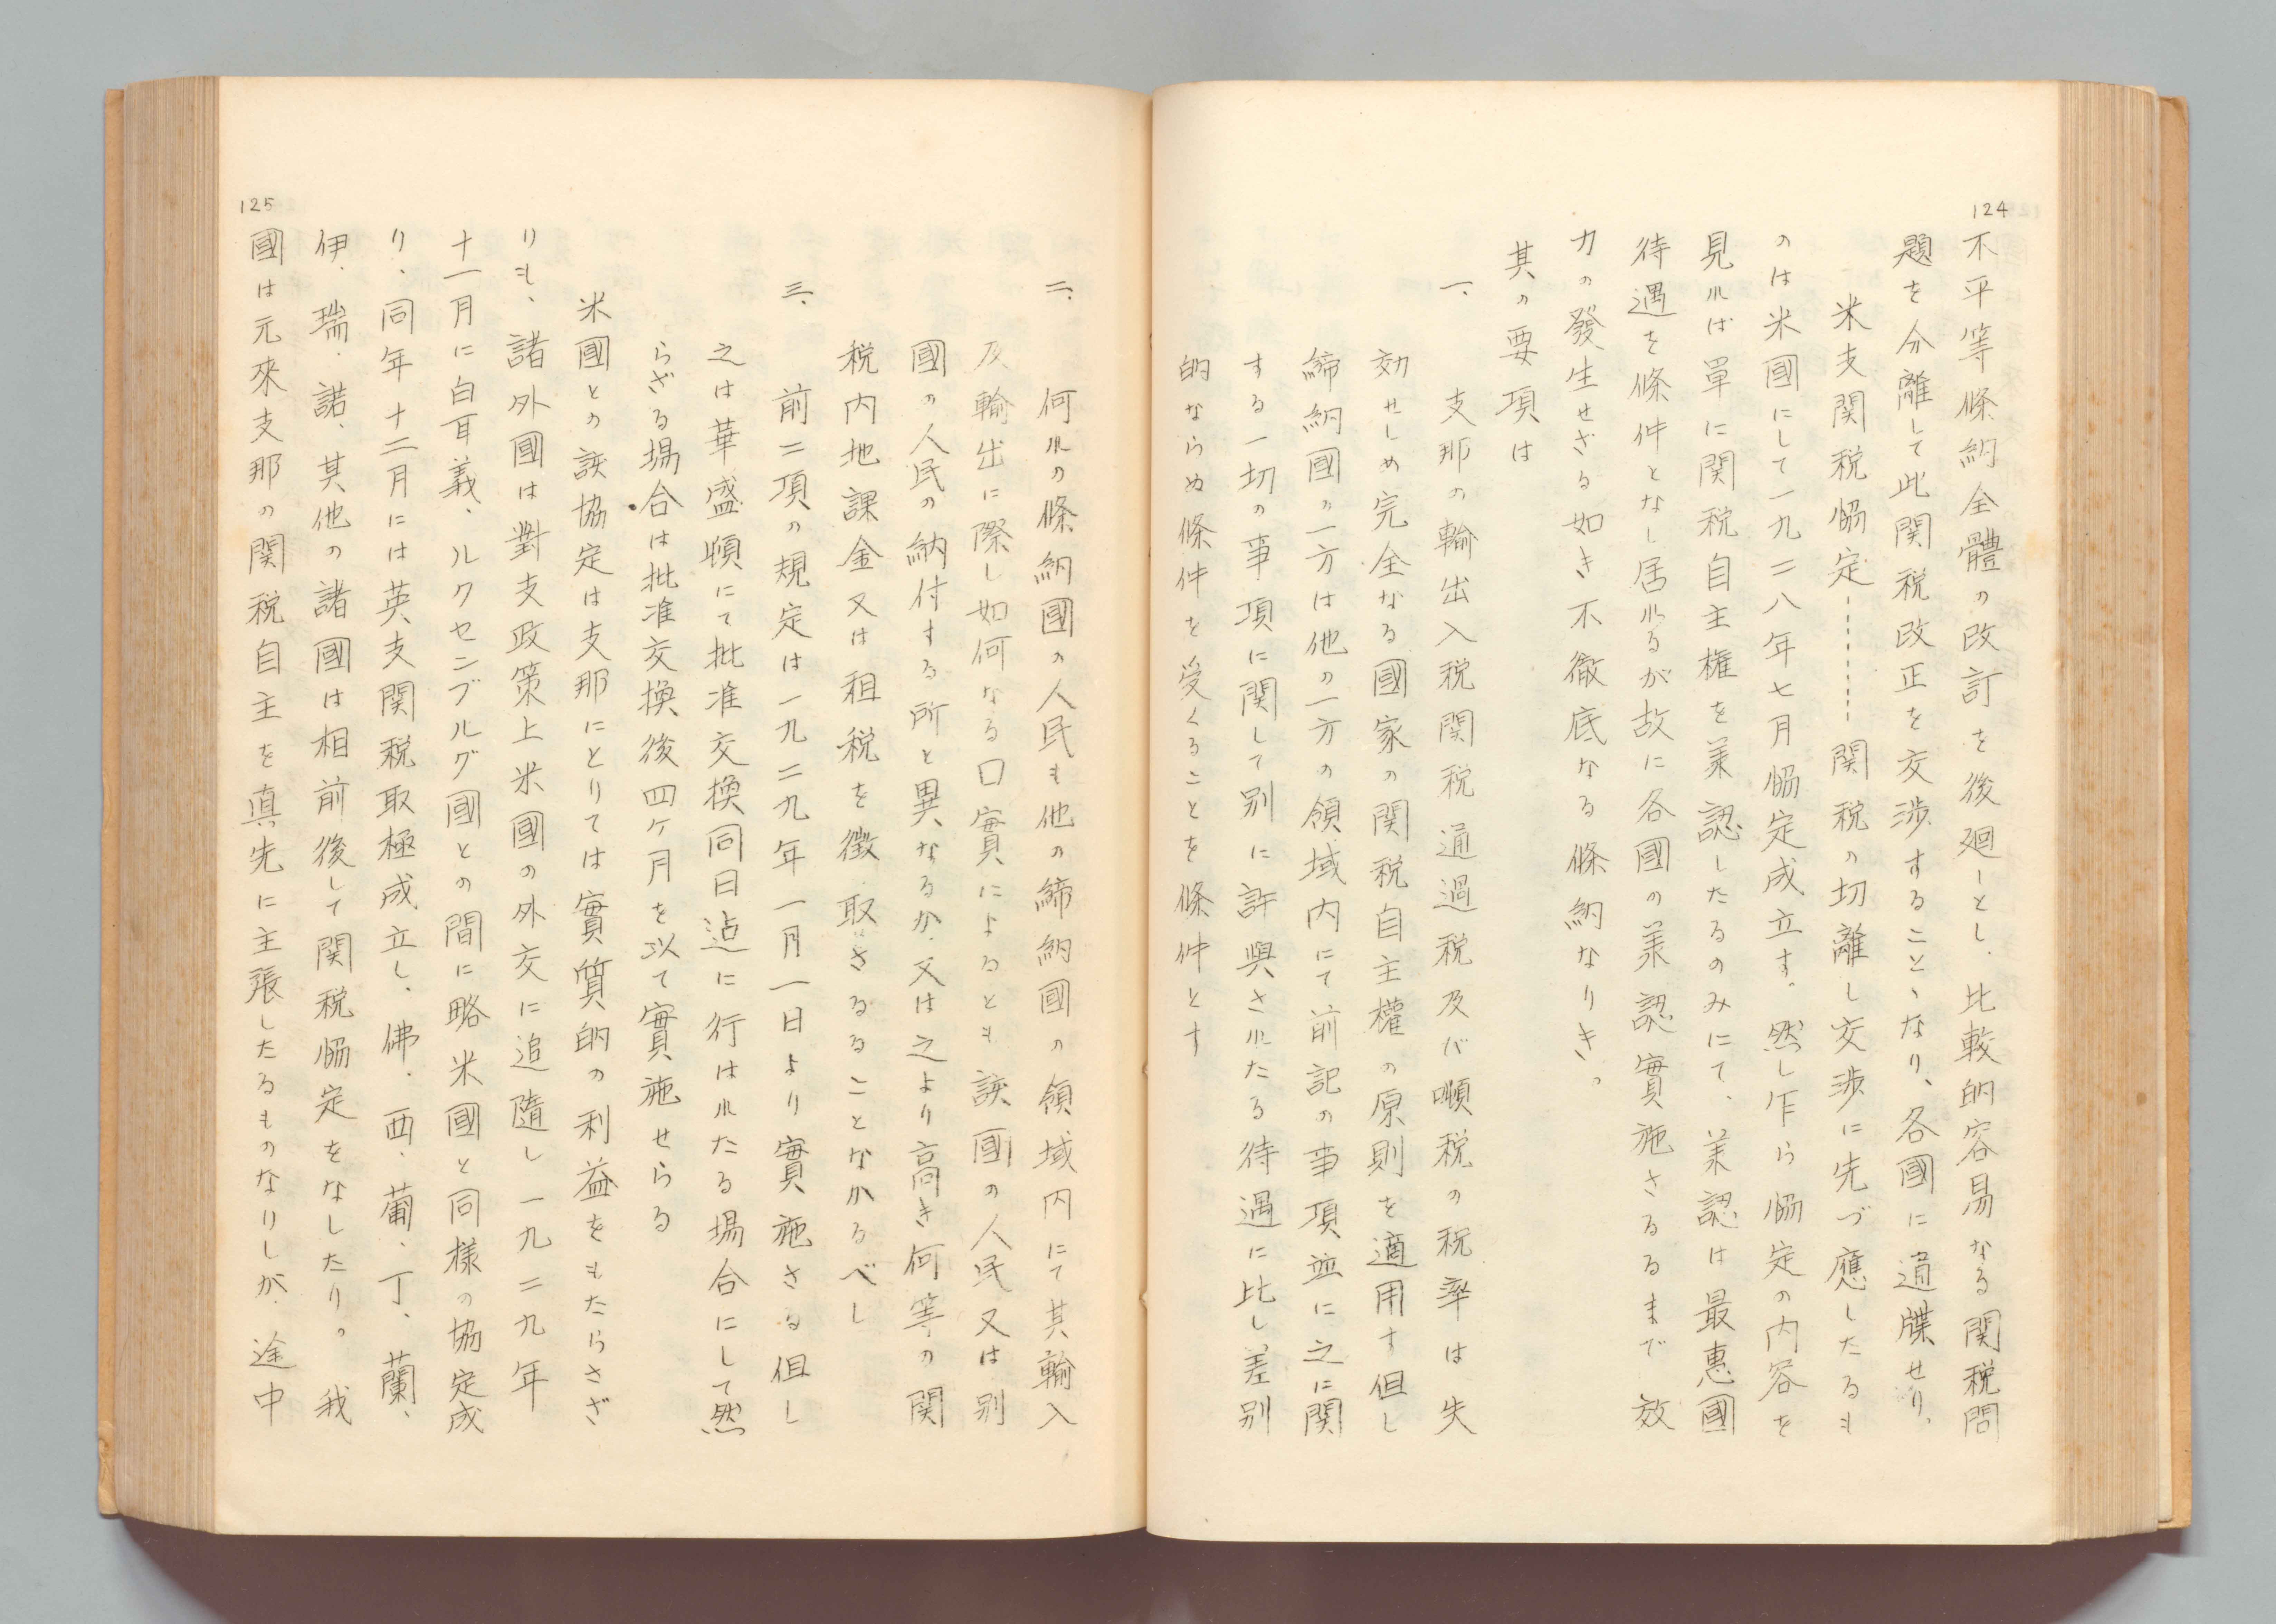 124
不平等條約全體の改訂を後廻しとし、比較的容易なる関税問
題を分離して此関税改正を交渉すること、なり、各國に通牒せり、
米支関税協定………関税の切離し交渉に先づ應したるも
のは米國にして一九二八年七月協定成立す。然し乍ら協定の内容を
見れば單に関税自主権を承認したるのみにて、承認は最惠國
待遇を條件となし居れるが故に各國の承認實施さるるまで效
力の發生せざる如き不徹底なる條約なりき。
其の要項は
一、支那の輸出入税関税通過税及バ噸税の税率は失
効せしめ完全なる國家の関税自主權の原則を適用す但し
締約國の一方は他の一方の領域内にて前記の事項並に之に関
する一切の事項に関して別に許與されたる待遇に比し差別
的ならぬ條件を受くることを條件とす
二、何れの條約國の人民も他の締約國の領域内にて其輸入
及輸出に際し如何なる口實によるとも該國の人民又は別
國の人民の納付する所と異なるか、又は之より高き何等の関
税内地課金又は租税を徴取さるることなかるべし
三、前二項の規定は一九二九年一月一日より實施さる但し
之は華盛頓にて批准交換同日迠に行はれたる場合にして然
らざる場合は批准交換後四ケ月を以て實施せらる
米國との該協定は支那にとりては實質的の利益をもたらさざ
りも、諸外國は對支政策上米國の外交に追隨し一九二九年
十一月に白耳義、ルクセンブルグ國との間に略米國と同様の協定成
り、同年十二月には英支関税取極成立し、佛、西、葡、丁、蘭、
伊、瑞、諾、其他の諸國は相前後して関税協定をなしたり。我
國は元來支那の関税自主を真先に主張したるものなりしが、途中
125